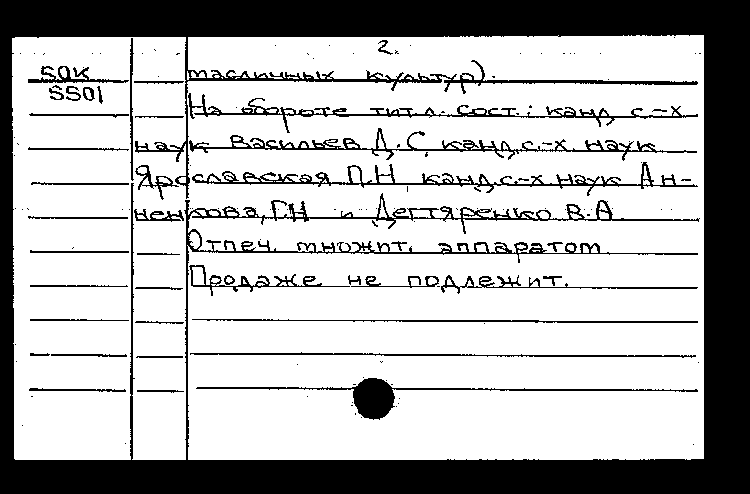 2.
50K
масличных культур).
SS01
На обороте тит.л. сост.: канд, с.-х
наук Васильев Д.С, канд,с.-х наук
Ярославская П.Н, канд.с.-х.наук Ан-
ненкова, Г.Н и Дегтяренко В.А
Отпеч. множит. аппаратом
Продаже не подлежит.